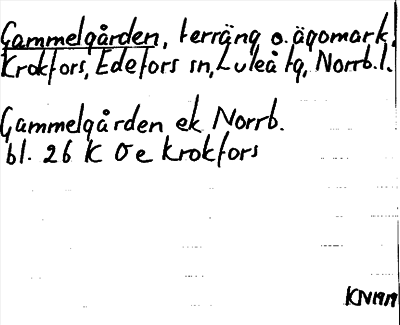 Gammelgården, terräng o. ägomark,
Krokfors, Edefors sn, Luleå tg, Norrb. l.
Gammelgården ek Norrb.
bl. 26 K Ö e Krokfors
KN1919